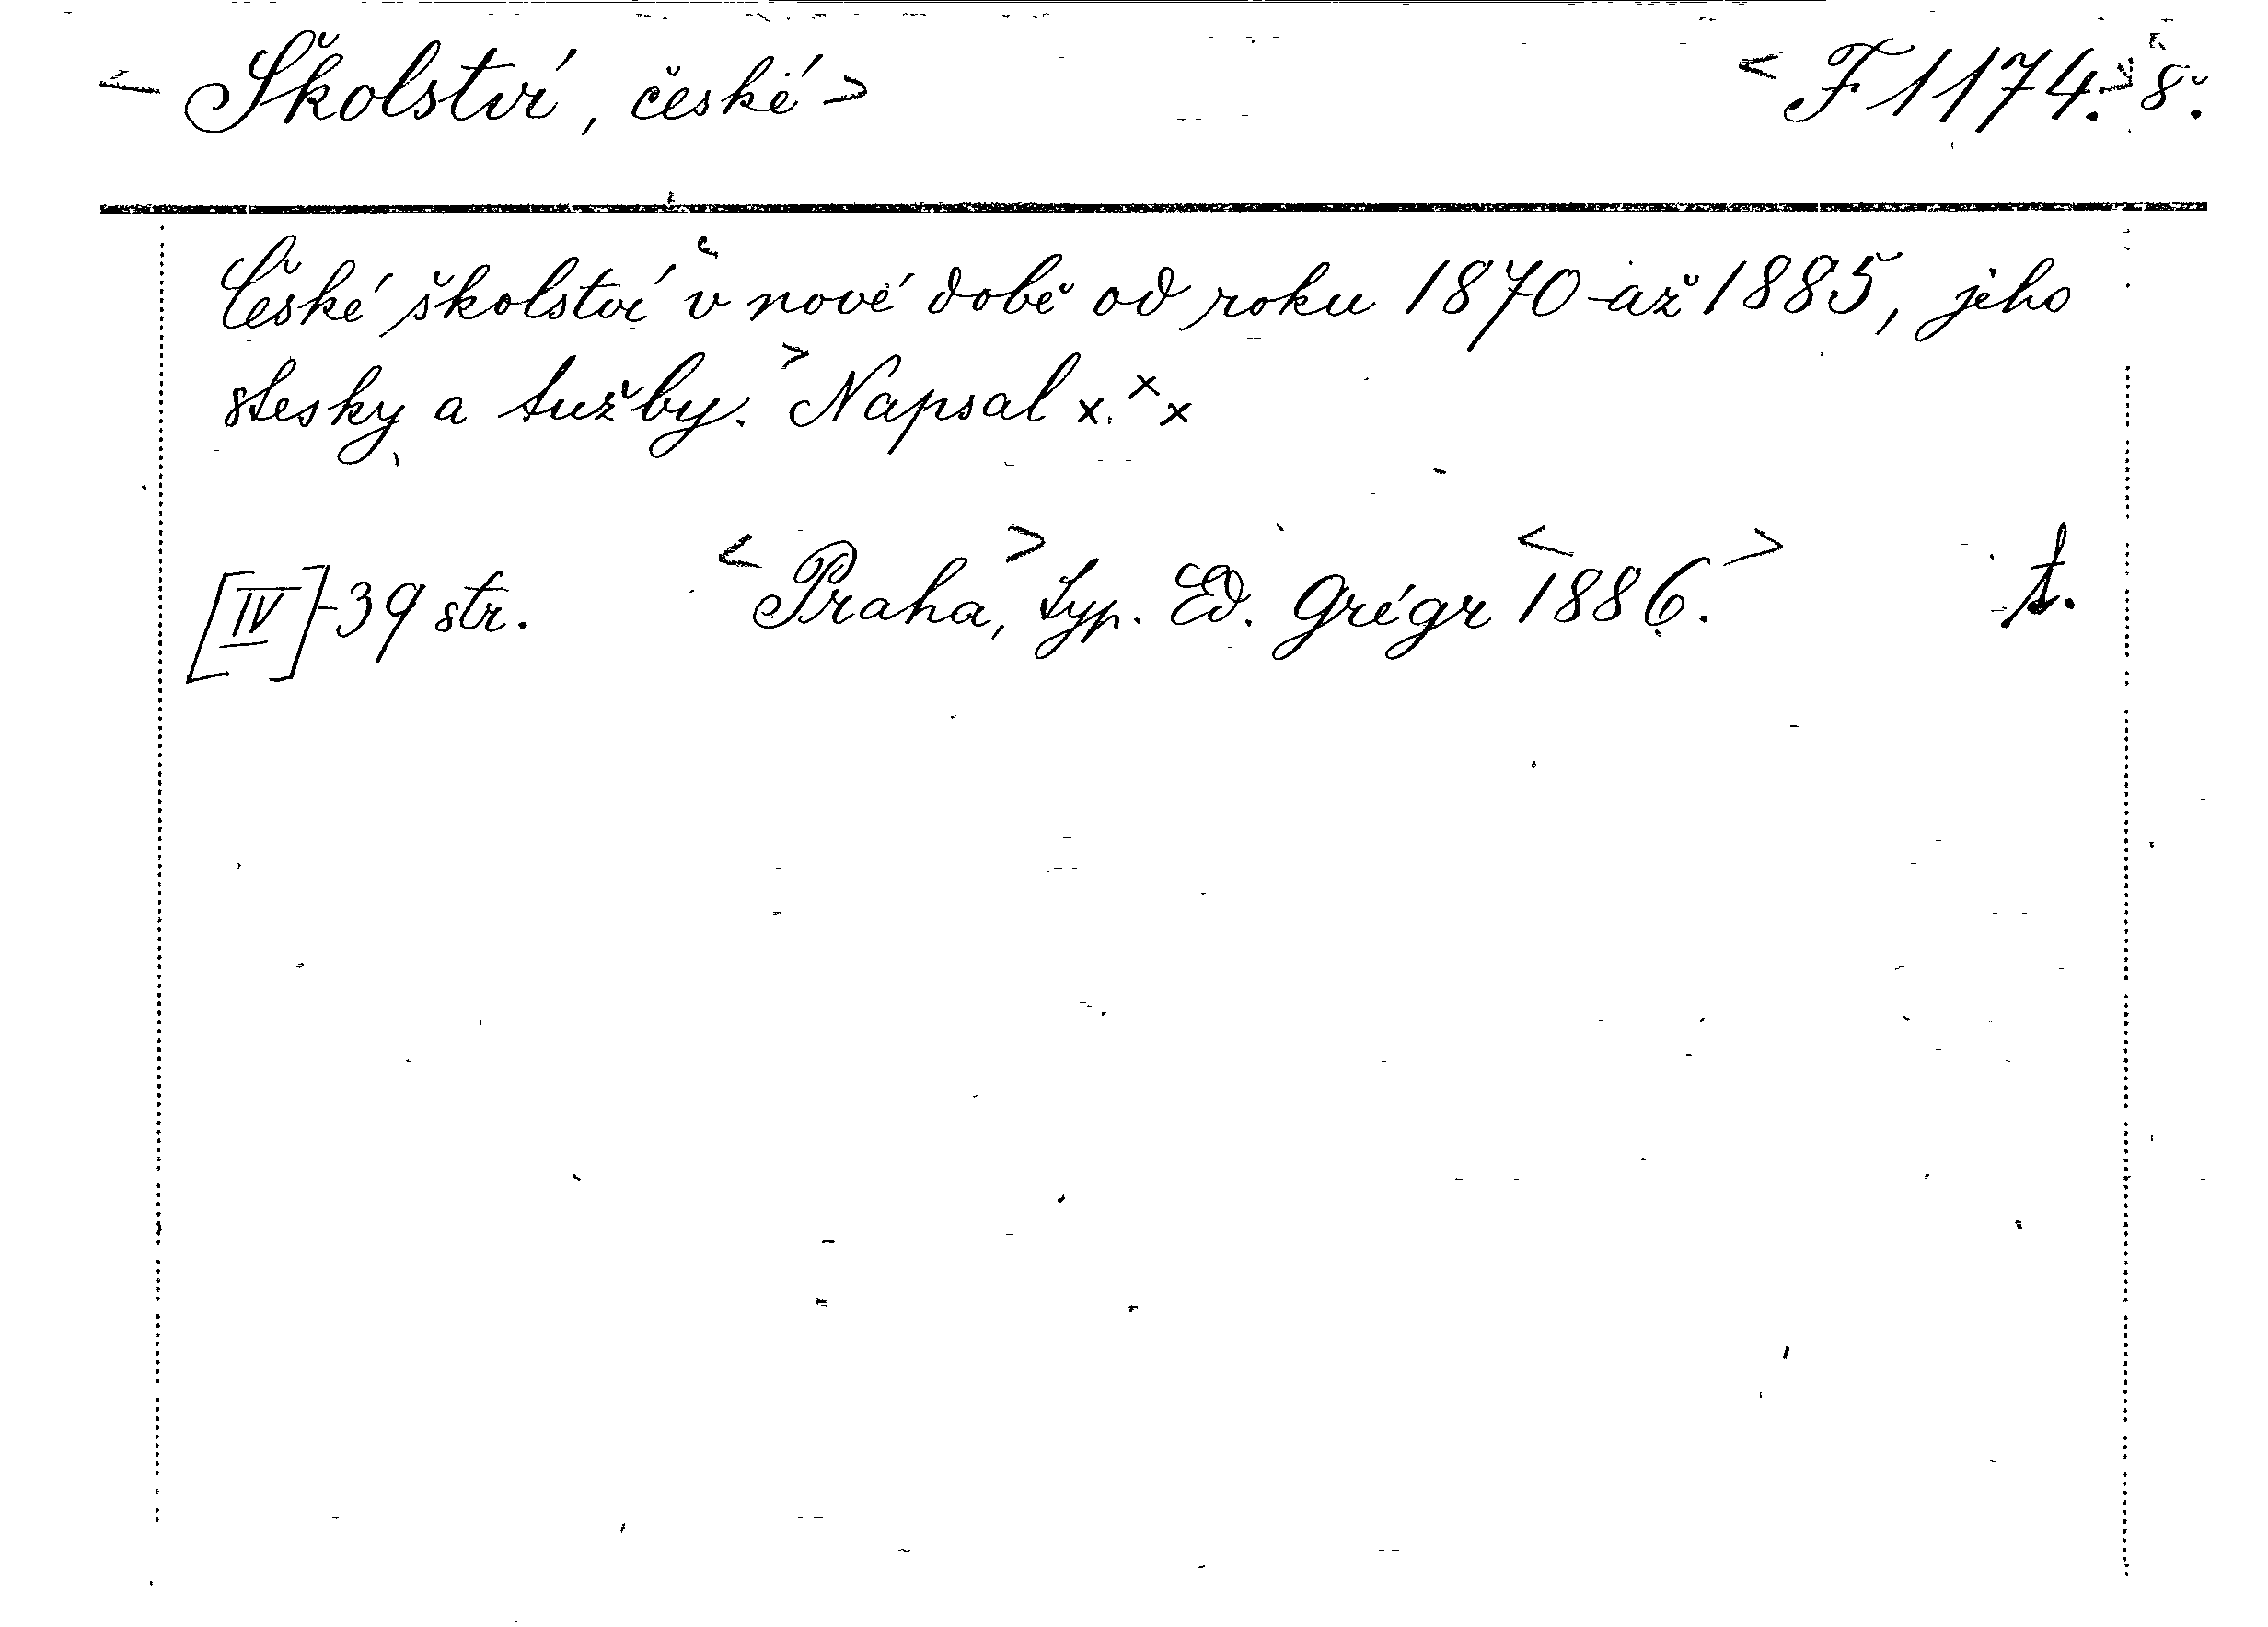 < Školství, české > < F 1174. > 8°.
České školství v nové době od roku 1870-až 1885, jeho
stesky a tužby. > Napsal x x x
[IV]-39 str. < Praha, > typ. Ed. Grégr < 1886. > t.